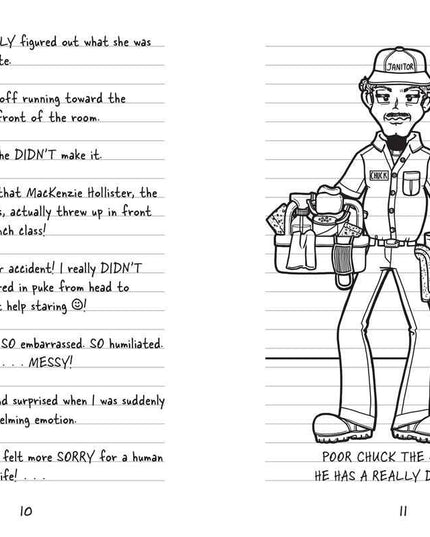 LY figured out what she was
te.
off running toward the
front of the room.
he DIDN'T make it.
that MacKenzie Hollister, the
s, actually threw up in front
nch class!
r accident! I really DIDN'T
red in puke from head to
t help staring ☺!
SO embarrassed. SO humiliated.
. . . MESSY!
nd surprised when I was suddenly
elming emotion.
felt more SORRY for a human
life! . . .
10
JANITOR
CHUCK
POOR CHUCK THE
HE HAS A REALLY D
11